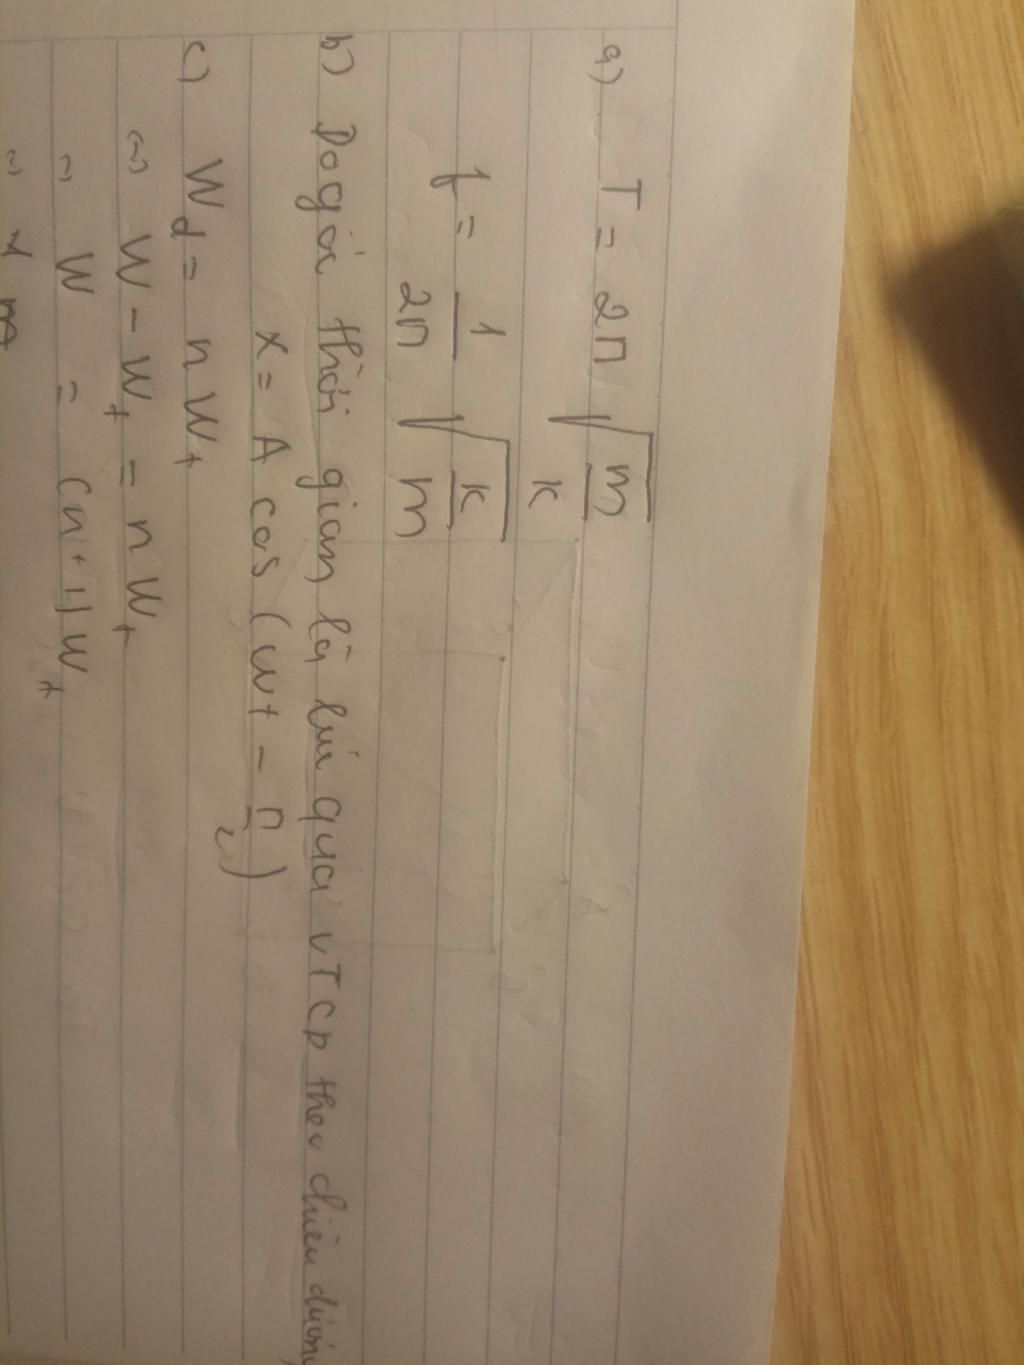 a) T = 2π √(m/k)
f = 1/2π √(k/m)
b) Do gốc thời gian là lúc qua VTCB theo chiều dương
x = A cos (ωt - π/2)
c) Wđ = n Wt
(=) W - Wt = n Wt
=) W = (n + 1) Wt